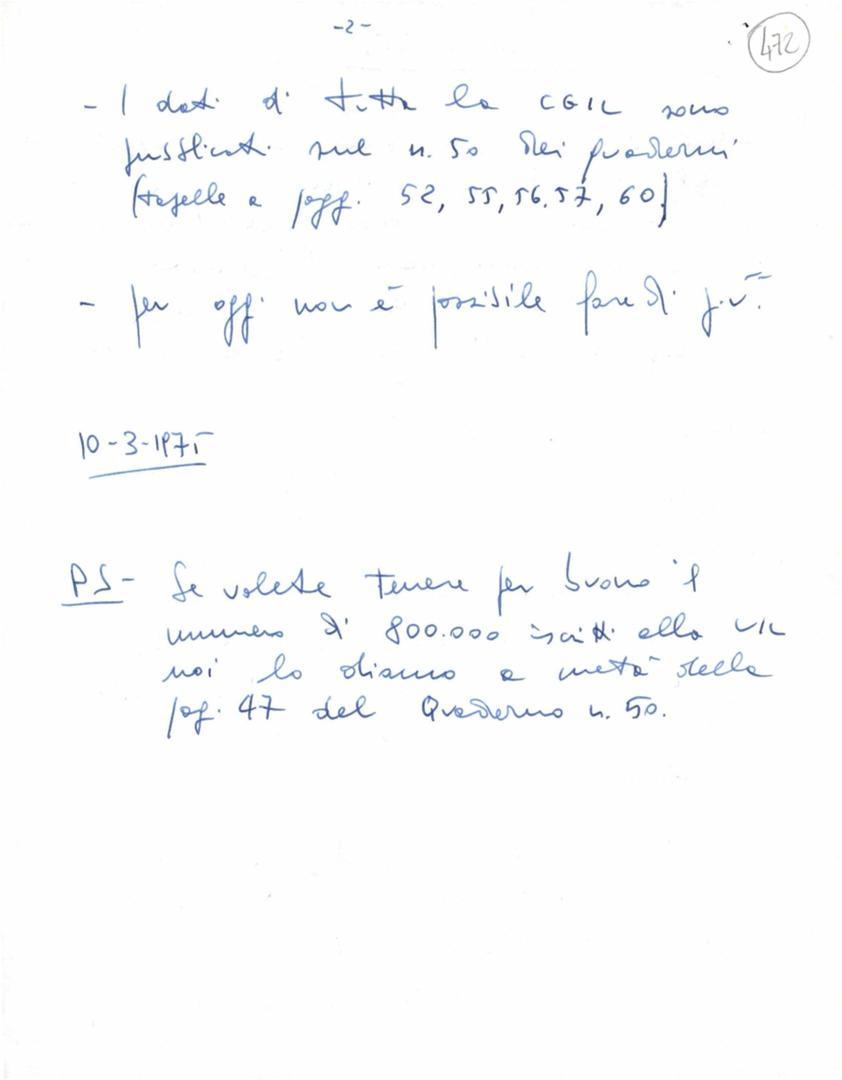 -2-
472
- I dati di tutta la CGIL sono
pubblicati sul n. 50 dei quaderni
(tabelle a pagg. 52, 55, 56, 57, 60)
- per oggi non è possibile fare di più.
10-3-1975
PS- Se volete tenere per buono il
numero di 800.000 iscritti alla UIL
noi lo diamo a metà della
pag. 47 del Quaderno n. 50.